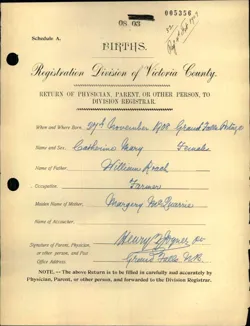 005356
08 03
Schedule A.
BIRTHS.
Registration Division of Victoria County.
RETURN OF PHYSICIAN, PARENT, OR OTHER PERSON, TO
DIVISION REGISTRAR.
When and Where Born, 27th November 1908 Grand Falls Portage
Name and Sex, Catherine Mary Female
Name of Father, William
Occupation, Farmer
Maiden Name of Mother, Margery
Name of Accoucher,
Signature of Parent, Physician,
or other person, and Post
Office Address.
Grand Falls N.B.
NOTE.—The above Return is to be filled in carefully and accurately by
Physician, Parent, or other person, and forwarded to the Division Registrar.